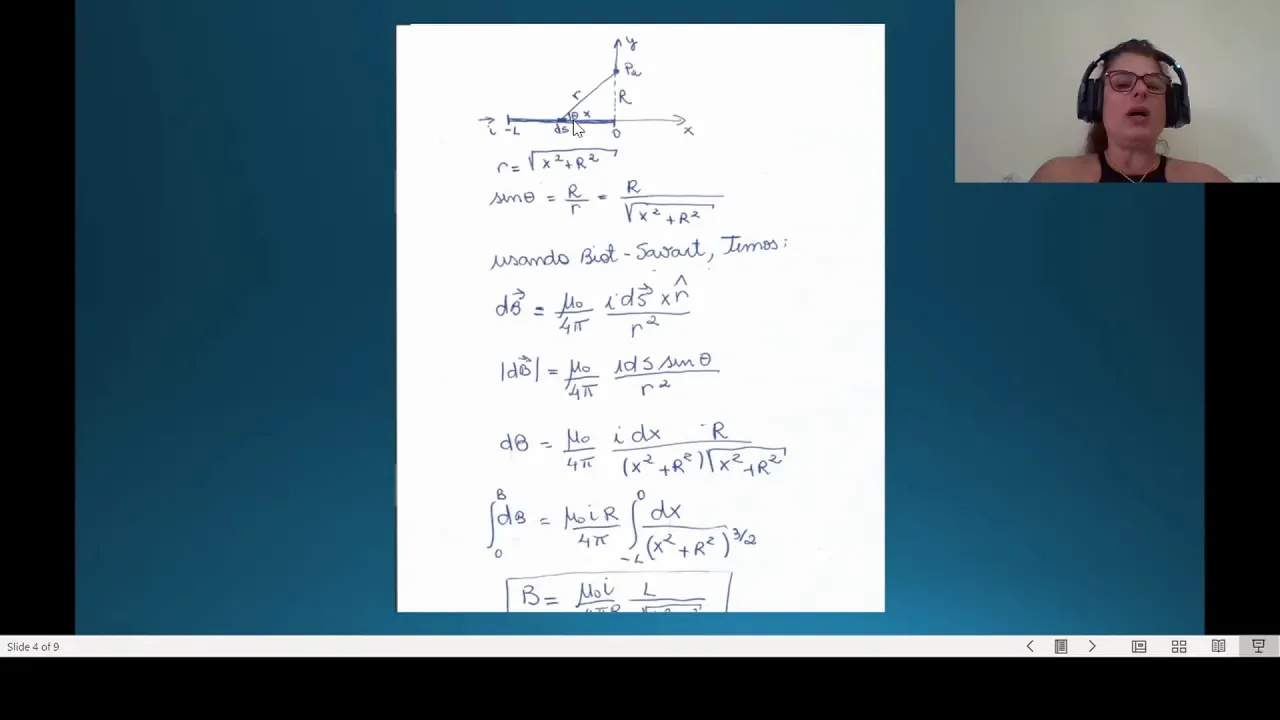 y
P₂
r
R
θ x
i -L ds 0 x
r = √(x² + R²)
senθ = R/r = R/√(x² + R²)
usando Biot-Savart, Temos:
dB⃗ = μ₀/4π i ds⃗ x r̂/r²
|dB⃗| = μ₀/4π i ds senθ/r²
dB = μ₀/4π i dx · R/(x² + R²)√(x² + R²)
∫₀ᴮ dB = μ₀ i R/4π ∫₋L⁰ dx/(x² + R²)^3/2
B = μ₀ i L
Slide 4 of 9